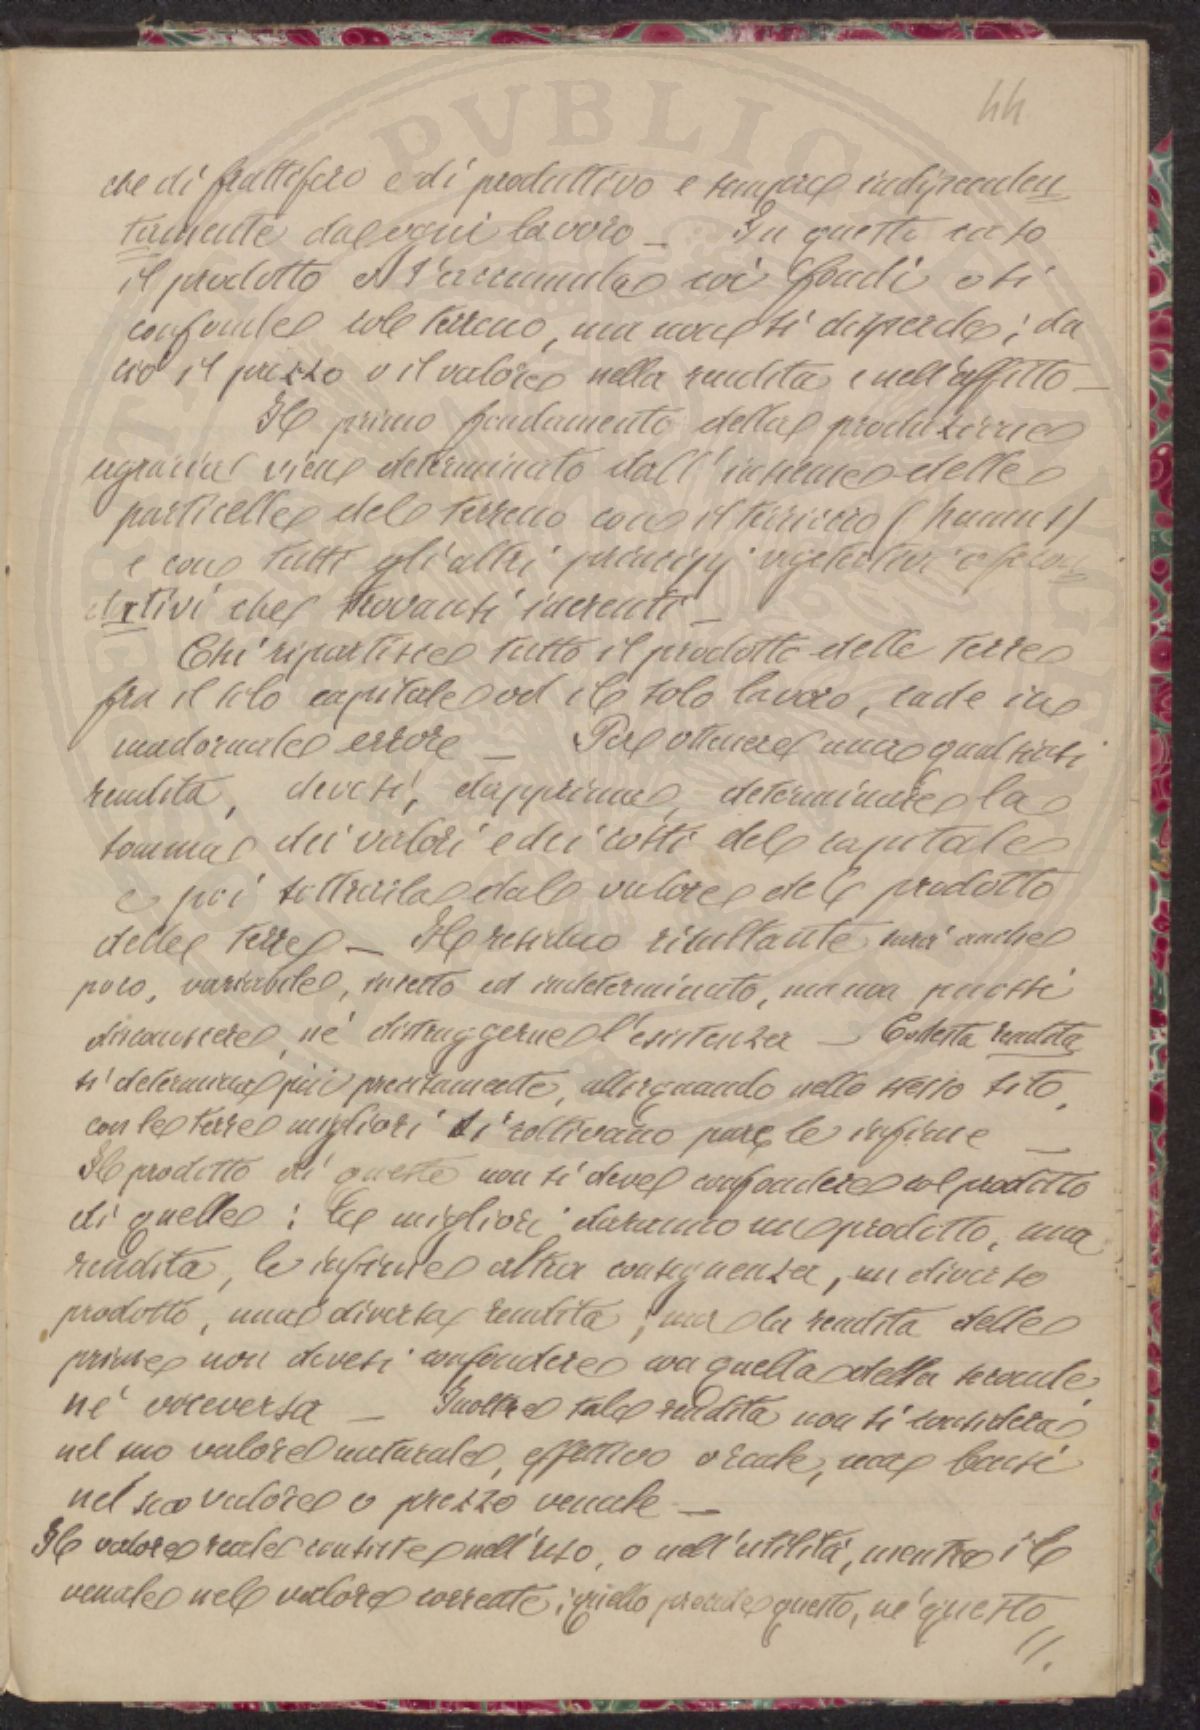 44
che di fruttifero e di produttivo e sempre indipenden
temente da ogni lavoro — In questo caso
il prodotto o s'accumula coi fondi o si
confonde col terreno, ma non si disperde; da
ciò il prezzo o il valore nella rendita e nell'affitto —
Il primo fondamento della produzione
agraria viene determinato dall'insieme delle
particelle del terreno con il terriccio (humus)
e con tutti gli altri principj vegetativi e fecon
dativi che trovansi inerenti —
Chi ripartisce tutto il prodotto delle terre
fra il solo capitale ed il solo lavoro, cade in
madornale errore — Per ottenere una qualsiasi
rendita, devesi, dapprima, determinare la
somma dei valori e dei costi del capitale
e poi sottrarla dal valore del prodotto
delle terre — Il residuo risultante sarà anche
poco, variabile, incerto ed indeterminato, ma non puossi
disconoscere, nè distruggerne l'esistenza — Codesta rendita
si determina più precisamente, allorquando nello stesso sito,
con le terre migliori si coltivano pure le infime —
Il prodotto di queste non si deve confondere col prodotto
di quelle: Le migliori daranno un prodotto, una
rendita, le infime altra conseguenza, un diverso
prodotto, una diversa rendita; ma la rendita delle
prime non devesi confondere con quella delle seconde
nè viceversa — Inoltre tale rendita non si considera
nel suo valore naturale, effettivo o reale, ma bensì
nel suo valore o prezzo venale —
Il valore reale consiste nell'uso, o nell'utilità, mentre il
venale nel valore corrente; quello precede questo, nè questo
//.
PVBLIC